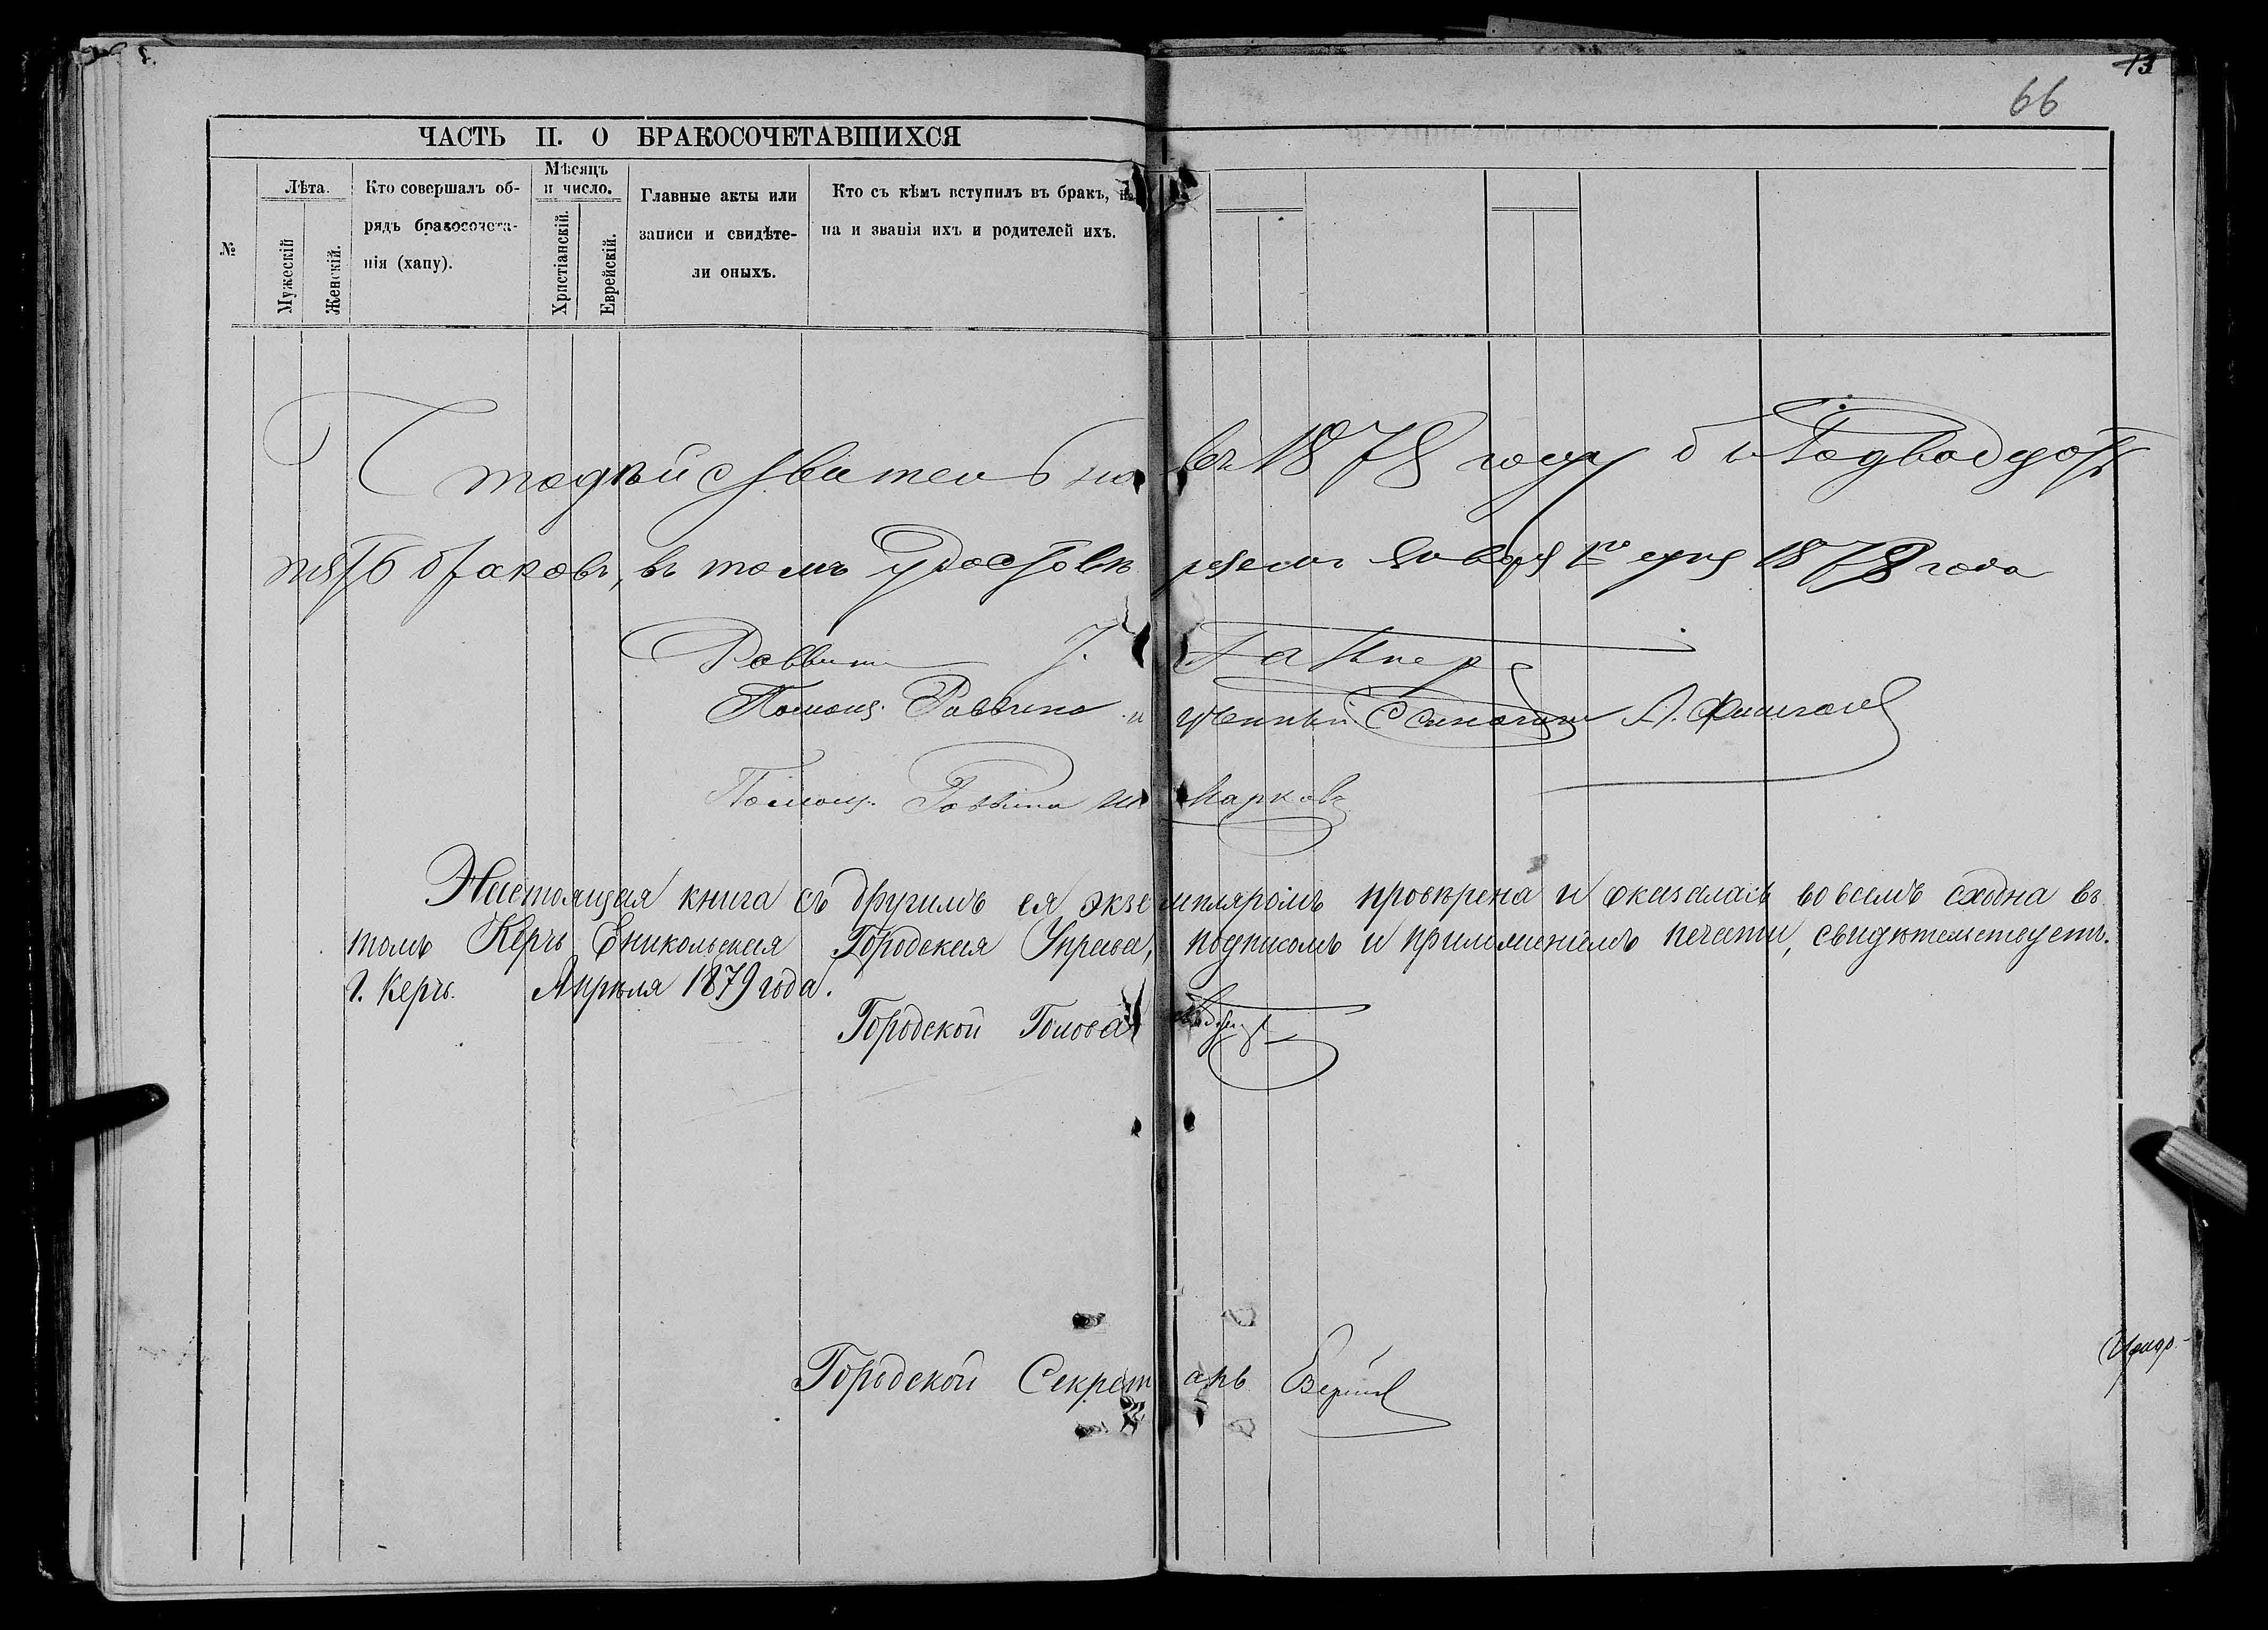 66
ЧАСТЬ II. О БРАКОСОЧЕТАВШИХСЯ
№
Лѣта.
Мужескій
Женскій.
Кто совершалъ об-
рядъ бракосочета-
нія (хапу).
Мѣсяцъ
и число.
Христіанскій.
Еврейскій.
Главные акты или
записи и свидѣте-
ли оныхъ.
Кто съ кѣмъ вступилъ въ бракъ,
на и званія ихъ и родителей ихъ.
Что дѣйствительно въ 1878 году
пять браковъ, въ томъ удостовѣряемъ Января 1го дня 1878 года
Раввинъ
Помощ. Раввина и ученый А.
Помощ. Раввина Марковъ
Настоящая книга съ другимъ ея экземпляромъ провѣрена и оказалась во всемъ сходна въ
томъ Керчь Еникольская Городская Управа, подписомъ и приложеніемъ печати, свидѣтельствуетъ.
Г. Керчь. Апрѣля 1879 года.
Городской Голова
Городской Секретарь